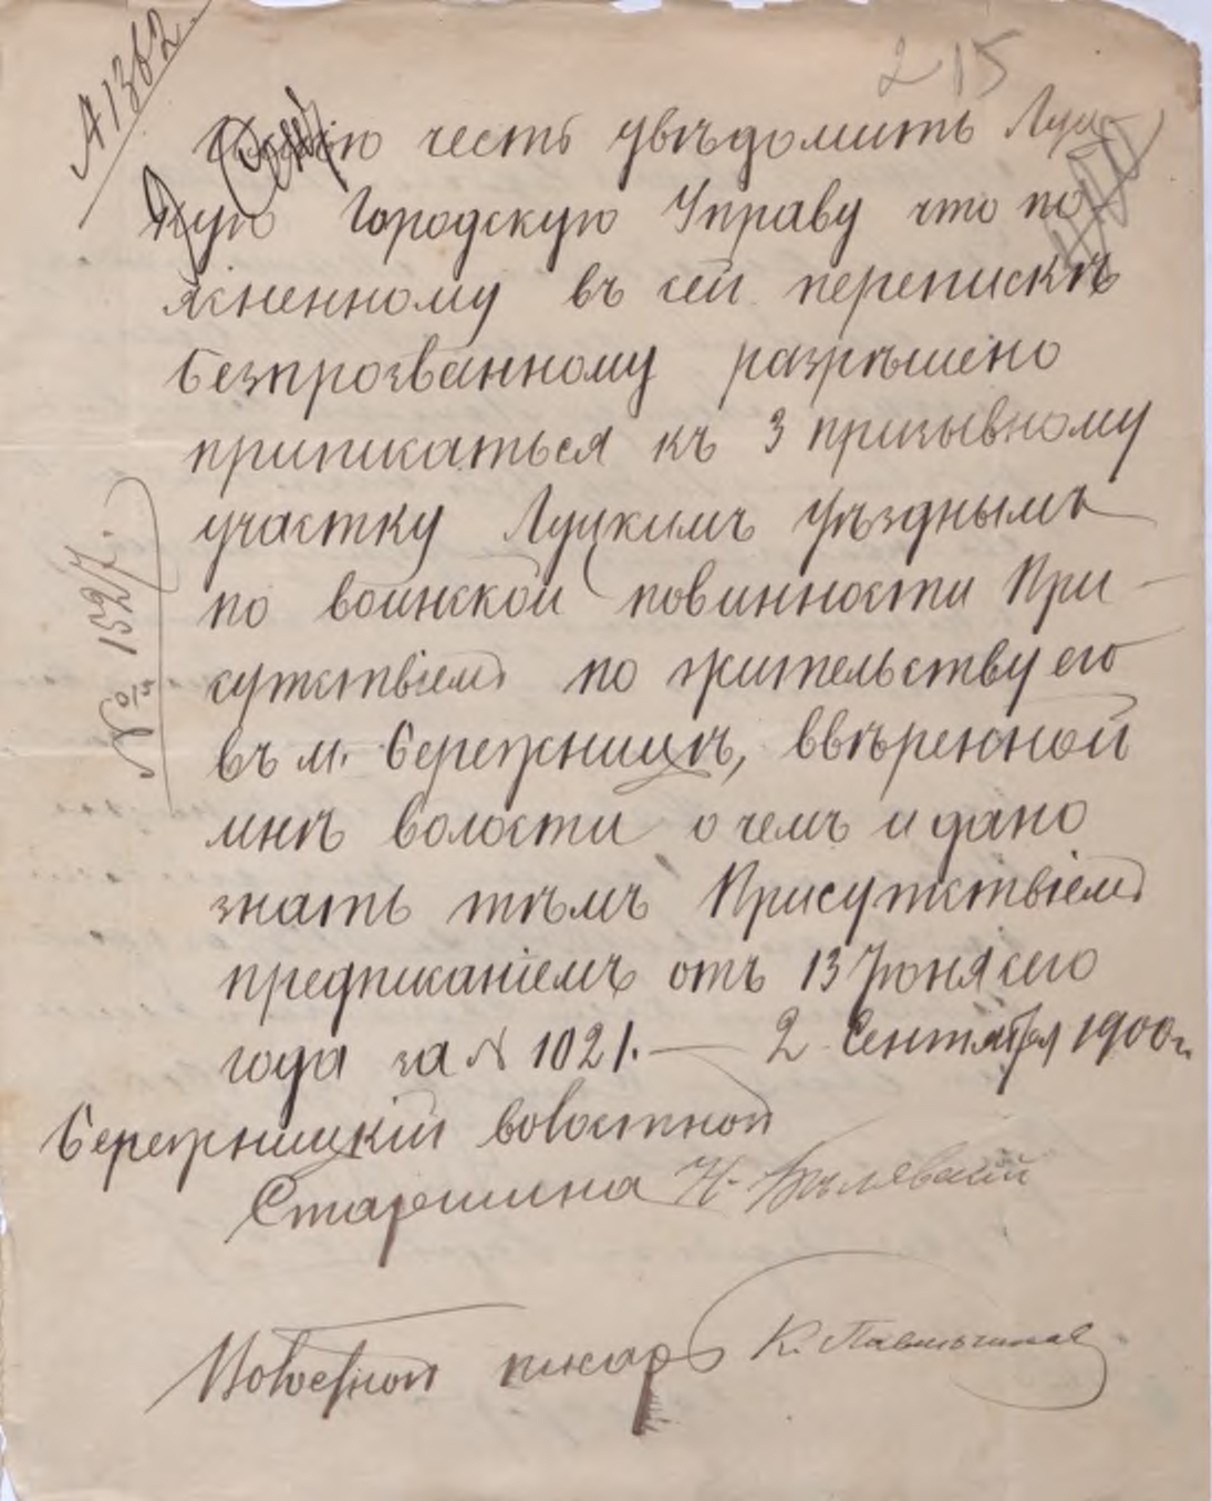 А 1362.
215
Имѣю честь увѣдомить Луц-
кую Городскую Управу что по-
ясненному въ сей перепискѣ
Безпрозванному разрѣшено
приписаться къ 3 призывному
участку Луцкимъ Уѣзднымъ
по воинской повинности При-
сутствіемъ по жительству его
въ м. Бережницѣ, ввѣренной
мнѣ волости о чемъ и дано
знать тѣмъ Присутствіемъ
предписаніемъ отъ 13 Іюня сего
года за № 1021. — 2 Сентября 1900 г.
Бережницкій волостной
Старшина Н. Бѣлявскій
Волостной писарь К.
№ 1527.